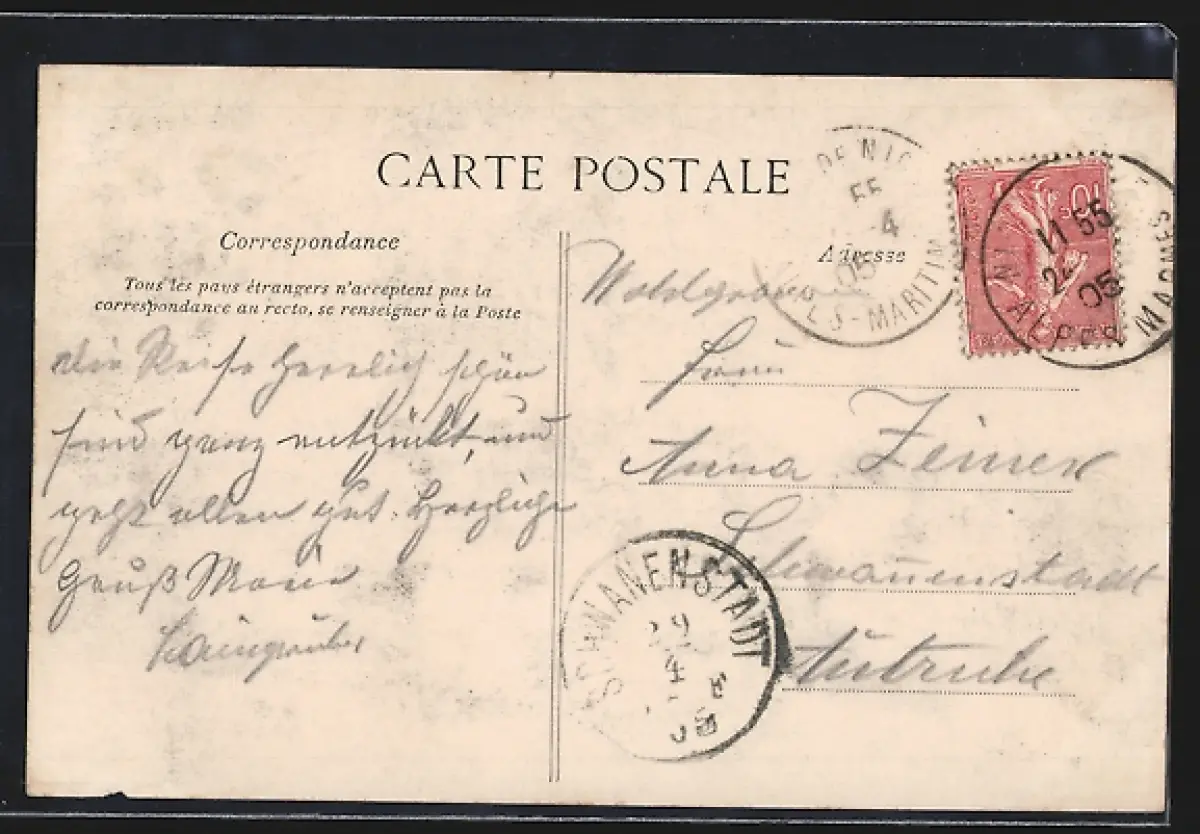 CARTE POSTALE
Correspondance
Tous les pays étrangers n'acceptent pas la
correspondance au recto, se renseigner à la Poste
die Reise herrlich schön
sind ganz entzückt, und
geht allen gut. Herzliche
Gruß Marie
Adresse
Wohlgeboren
Frau
Anna Zeiner
Schwanenstadt
Autriche
SCHWANENSTADT
29
4
05
DE NIC
55
4
05
ES-MARITIM
10c
11 55
24
05
ALPES MARITIMES